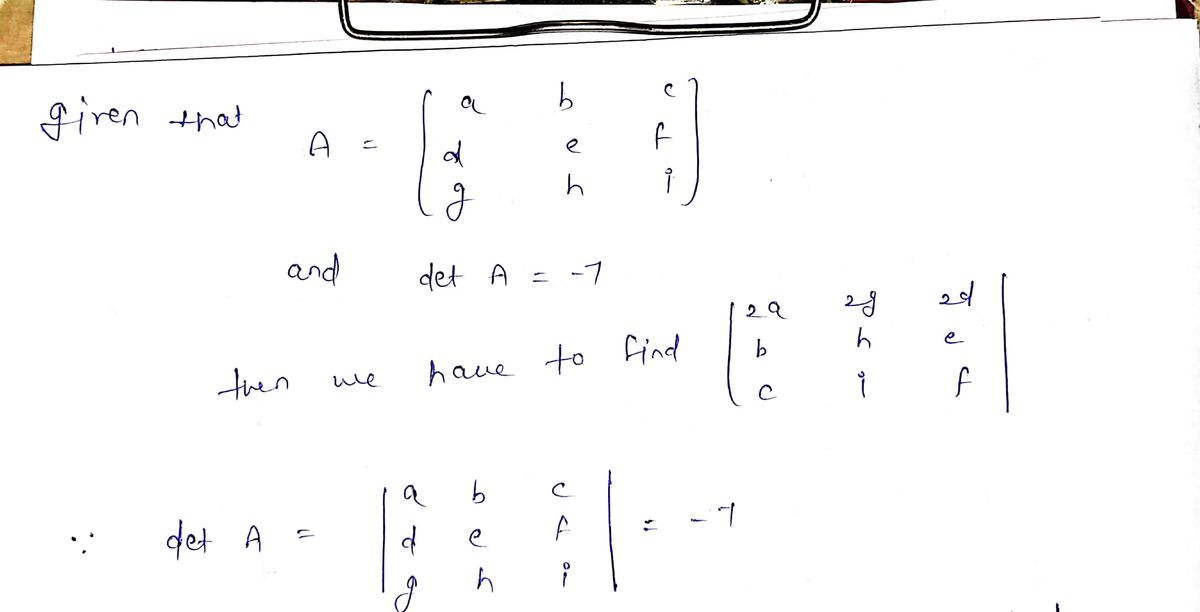 given that A = [ a b c
d e f
g h i ]
and det A = -7
then we have to find | 2a 2g 2d
b h e
c i f |
∵ det A = | a b c
d e f
g h i | = -7